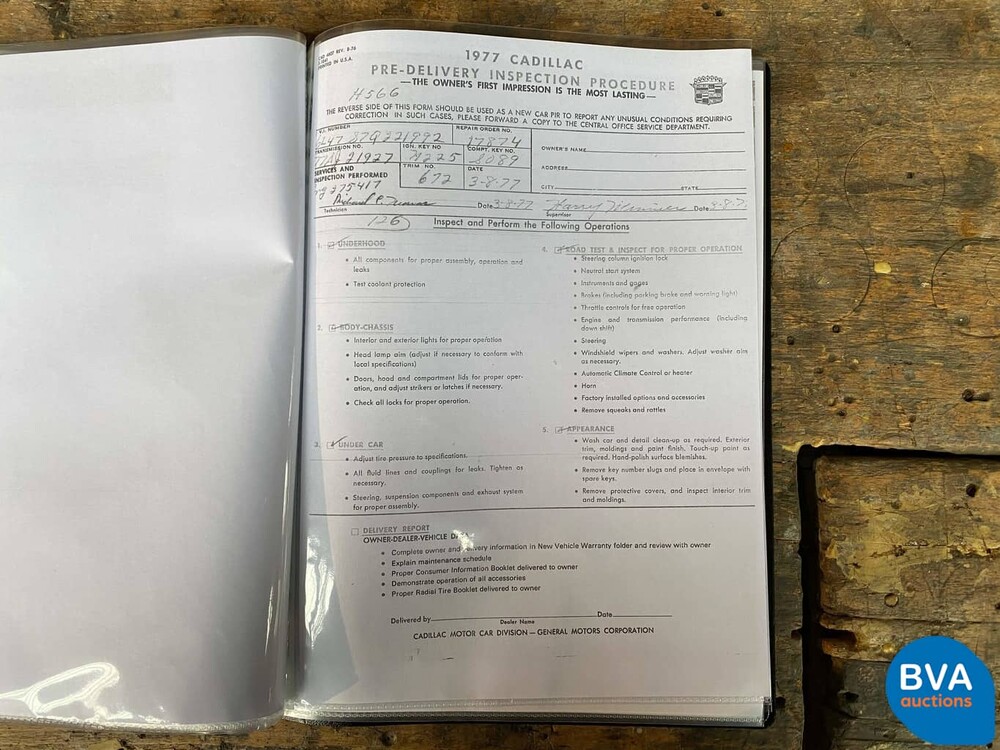 REV. 8-76
PRINTED IN U.S.A.
1977 CADILLAC
PRE-DELIVERY INSPECTION PROCEDURE
—THE OWNER'S FIRST IMPRESSION IS THE MOST LASTING—
H566
THE REVERSE SIDE OF THIS FORM SHOULD BE USED AS A NEW CAR PIR TO REPORT ANY UNUSUAL CONDITIONS REQUIRING
CORRECTION IN SUCH CASES, PLEASE FORWARD A COPY TO THE CENTRAL OFFICE SERVICE DEPARTMENT.
NUMBER REPAIR ORDER NO.
17874
OWNER'S NAME
TRANSMISSION NO. IGN. KEY NO COMPT. KEY NO.
21927 8089
ADDRESS
SERVICES AND
INSPECTION PERFORMED
TRIM NO. DATE
672 3-8-77
275417
CITY STATE
Date 3-8-77 Harry Date
Technician Supervisor
126 Inspect and Perform the Following Operations
1. UNDERHOOD
• All components for proper assembly, operation and
leaks
• Test coolant protection
2. BODY-CHASSIS
• Interior and exterior lights for proper operation
• Head lamp aim (adjust if necessary to conform with
local specifications)
• Doors, hood and compartment lids for proper oper-
ation, and adjust strikers or latches if necessary.
• Check all locks for proper operation.
3. UNDER CAR
• Adjust tire pressure to specifications.
• All fluid lines and couplings for leaks. Tighten as
necessary.
• Steering, suspension components and exhaust system
for proper assembly.
4. ROAD TEST & INSPECT FOR PROPER OPERATION
• Steering column ignition lock
• Neutral start system
• Instruments and gages
• Brakes (including parking brake and warning light)
• Throttle controls for free operation
• Engine and transmission performance (including
down shift)
• Steering
• Windshield wipers and washers. Adjust washer aim
as necessary.
• Automatic Climate Control or heater
• Horn
• Factory installed options and accessories
• Remove squeaks and rattles
5. APPEARANCE
• Wash car and detail clean-up as required. Exterior
trim, moldings and paint finish. Touch-up paint as
required. Hand-polish surface blemishes.
• Remove key number slugs and place in envelope with
spare keys.
• Remove protective covers, and inspect interior trim
and moldings.
DELIVERY REPORT
OWNER-DEALER-VEHICLE
• Complete owner and delivery information in New Vehicle Warranty folder and review with owner
• Explain maintenance schedule
• Proper Consumer Information Booklet delivered to owner
• Demonstrate operation of all accessories
• Proper Radial Tire Booklet delivered to owner
Delivered by Date
Dealer Name
CADILLAC MOTOR CAR DIVISION — GENERAL MOTORS CORPORATION
BVA
auctions